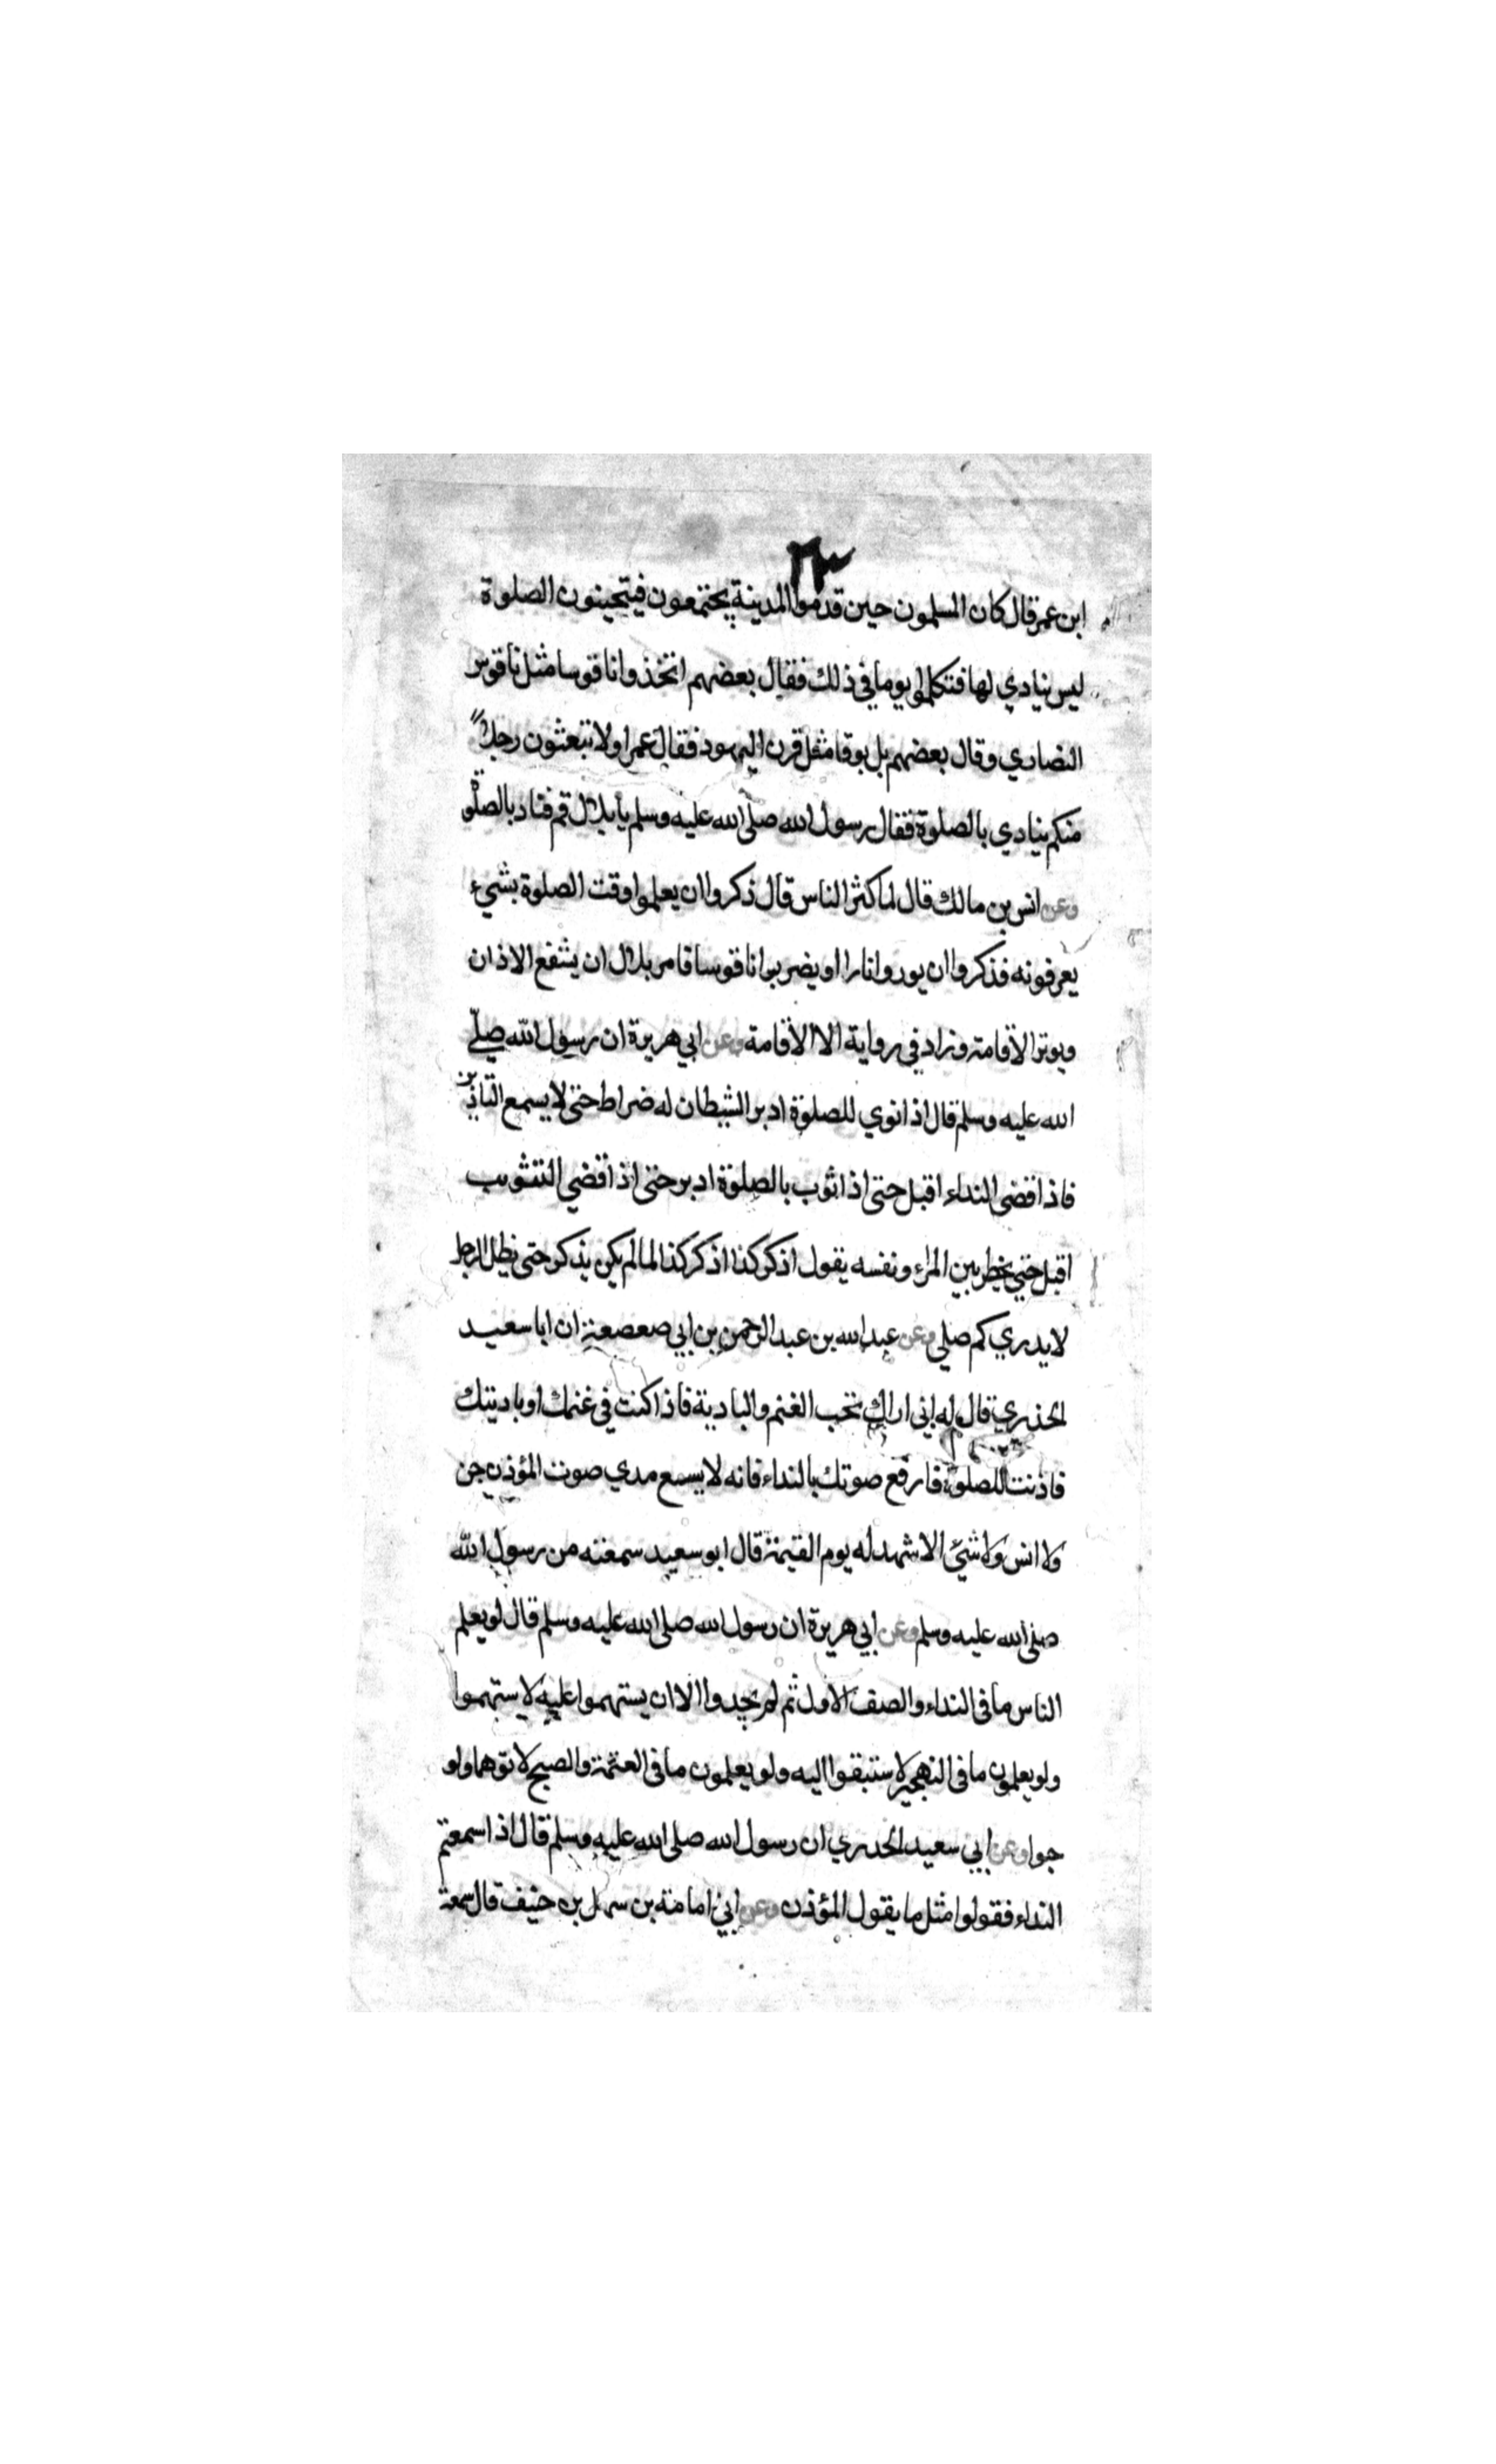 ٢٣
ابن عمر قال كان المسلمون حين قدموا المدينة يجتمعون فيتحينون الصلوة
ليس ينادي لها فتكلموا يوما في ذلك فقال بعضهم اتخذوا ناقوسا مثل ناقوس
النصاري وقال بعضهم بل بوقا مثل قرن اليهود فقال عمر اولا تبعثون رجلا
منكم ينادي بالصلوة فقال رسول الله صلى الله عليه وسلم يا بلال قم فناد بالصلوة
وعن انس بن مالك قال لما كثر الناس قال ذكروا ان يعلموا وقت الصلوة بشيء
يعرفونه فذكروا ان يوروا نارا او يضربوا ناقوسا فامر بلال ان يشفع الاذان
ويوتر الاقامة وزاد في رواية الا الاقامة وعن ابي هريرة ان رسول الله صلى
الله عليه وسلم قال اذا نودي للصلوة ادبر الشيطان له ضراط حتى لا يسمع التاذين
فاذا قضى النداء اقبل حتى اذا ثوب بالصلوة ادبر حتى اذا قضي التثويب
اقبل حتي يخطر بين المرء ونفسه يقول اذكر كذا اذكر كذا لما لم يكن يذكر حتى يظل الرجل
لا يدري كم صلي وعن عبد الله بن عبد الرحمن بن ابي صعصعة ان ابا سعيد
الخدري قال له اني اراك تحب الغنم والبادية فاذا كنت في غنمك او باديتك
فاذنت للصلوة فارفع صوتك بالنداء فانه لا يسمع مدي صوت المؤذن جن
ولا انس ولا شيئ الا شهد له يوم القيمة قال ابو سعيد سمعته من رسول الله
صلى الله عليه وسلم وعن ابي هريرة ان رسول الله صلى الله عليه وسلم قال لو يعلم
الناس ما في النداء والصف الاول ثم لم يجدوا الا ان يستهموا عليه لاستهموا
ولو يعلمون ما في التهجير لاستبقوا اليه ولو يعلمون ما في العتمة والصبح لاتوهما ولو
حبوا وعن ابي سعيد الخدري ان رسول الله صلى الله عليه وسلم قال اذا سمعتم
النداء فقولوا مثل ما يقول المؤذن وعن ابي امامة بن سهل بن حنيف قال سمعت